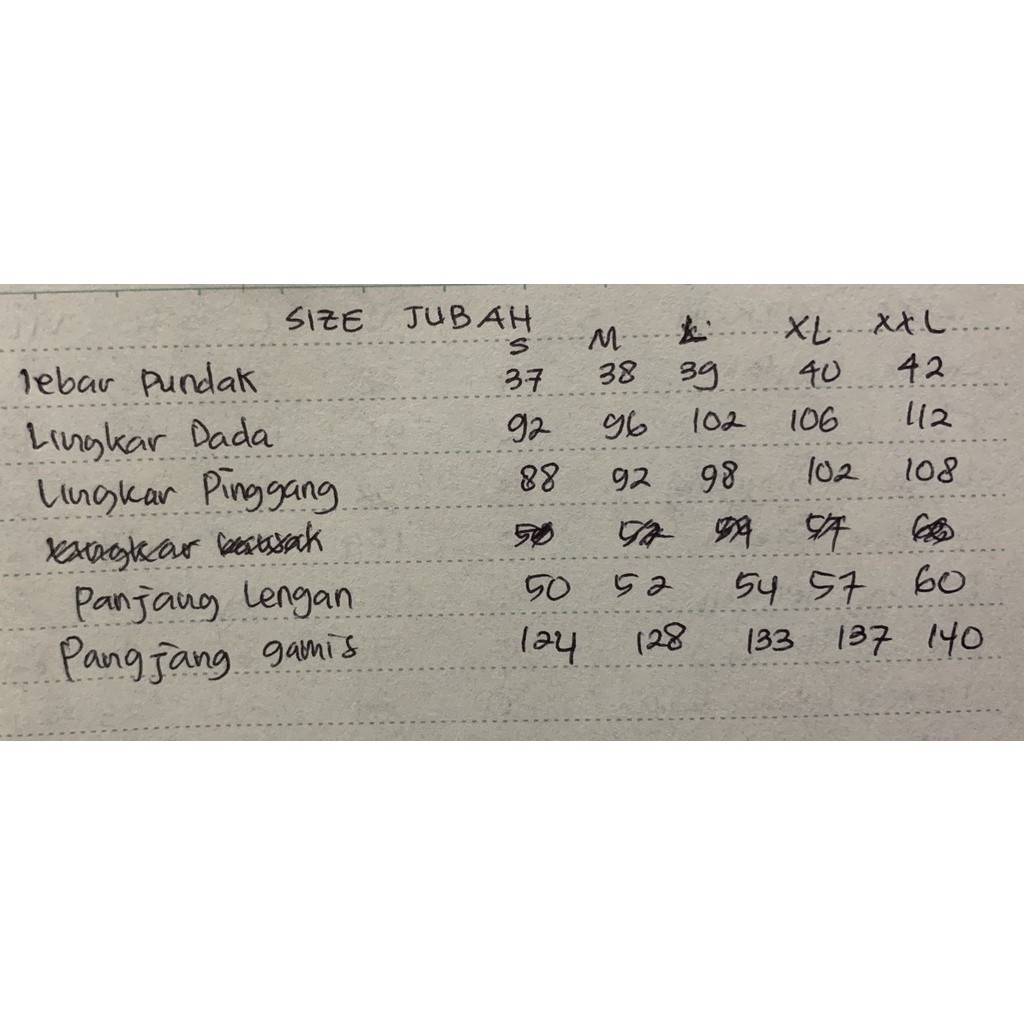 SIZE JUBAH
S M L XL XXL
lebar pundak 37 38 39 40 42
Lingkar Dada 92 96 102 106 112
Lingkar Pinggang 88 92 98 102 108
Panjang Lengan 50 52 54 57 60
Pangjang gamis 124 128 133 137 140